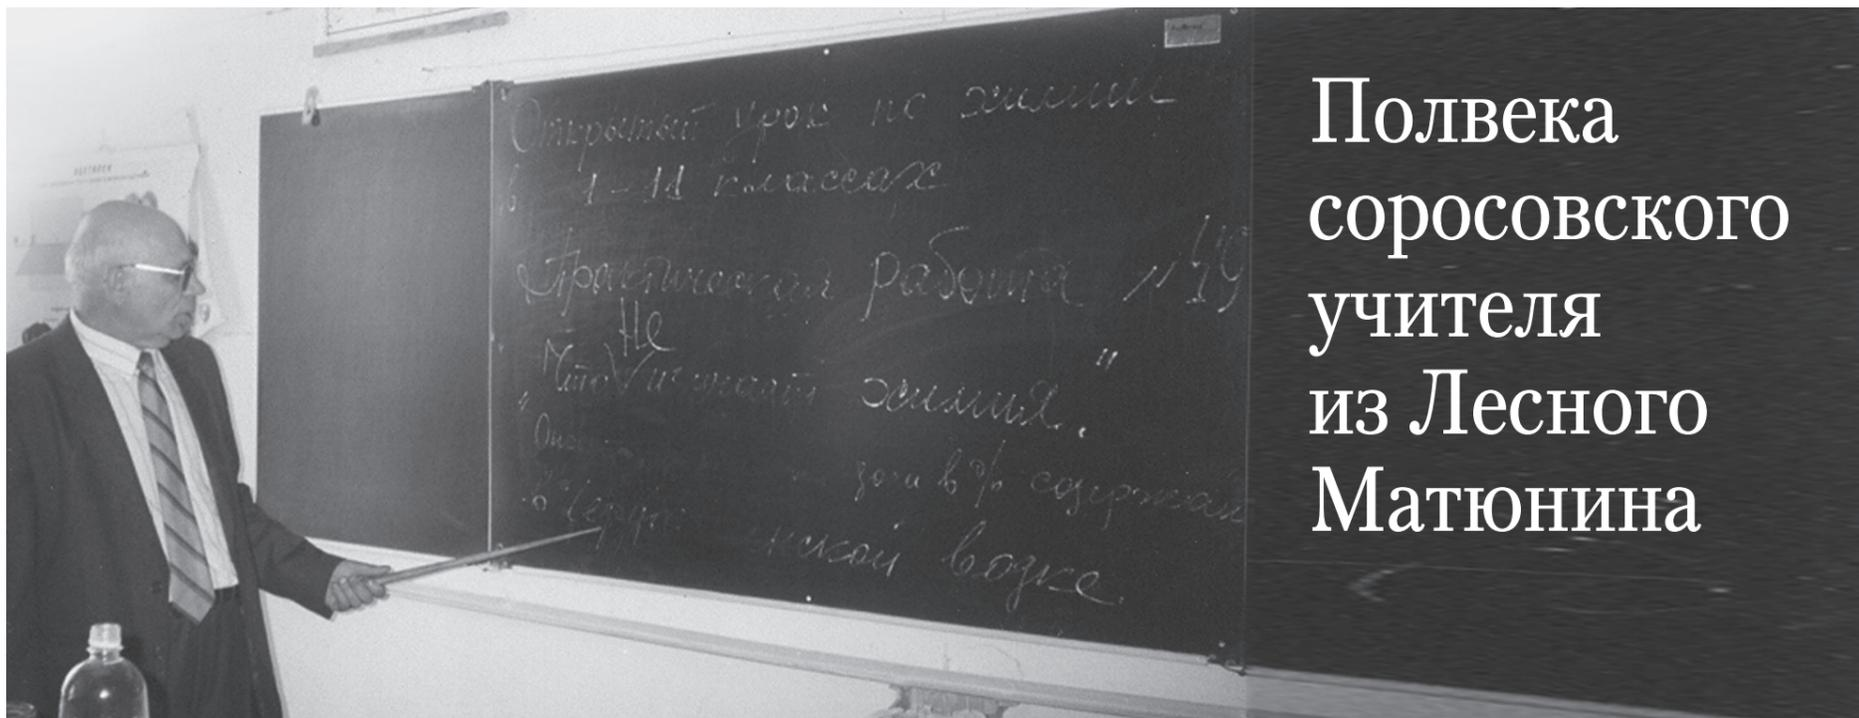 Открытый урок по химии
в 1-11 классах
Практическая работа №49
Не
"Что изучает химия."
золи в % содержан
нской водке.
Полвека
соросовского
учителя
из Лесного
Матюнина